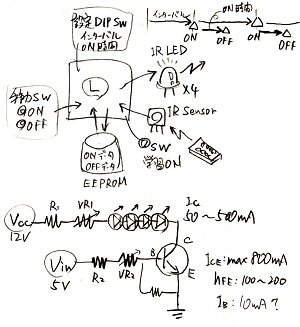 設定DIP SW
インターバル
ON時間
インターバル
ON時間
ON
OFF
ON
OFF
IR LED
×4
L
SW
①ON
②OFF
IR Sensor
①SW
学習ON
ONデータ
OFFデータ
EEPROM
R1
VR1
Ic
50〜500mA
Vcc
12V
C
B
E
Vin
5V
R2
VR2
ICE:max 800mA
hFE:100〜200
IB:10mA?